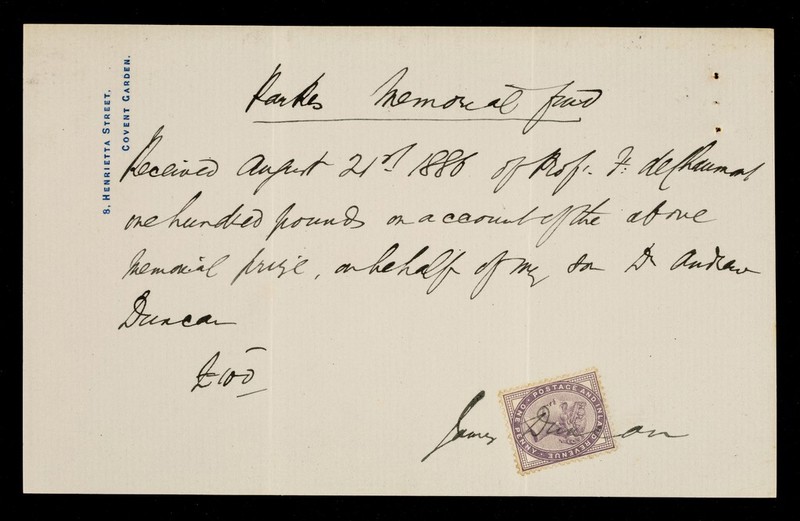 8, HENRIETTA STREET,
COVENT GARDEN.
Parkes Memorial fund
Received August 21st 1886 of Prof. F. de Chaumont
one hundred pounds on account of the above
memorial prize, on behalf of my son Dr Andrew
Duncan
£100
James Duncan
POSTAGE AND INLAND REVENUE
ONE PENNY